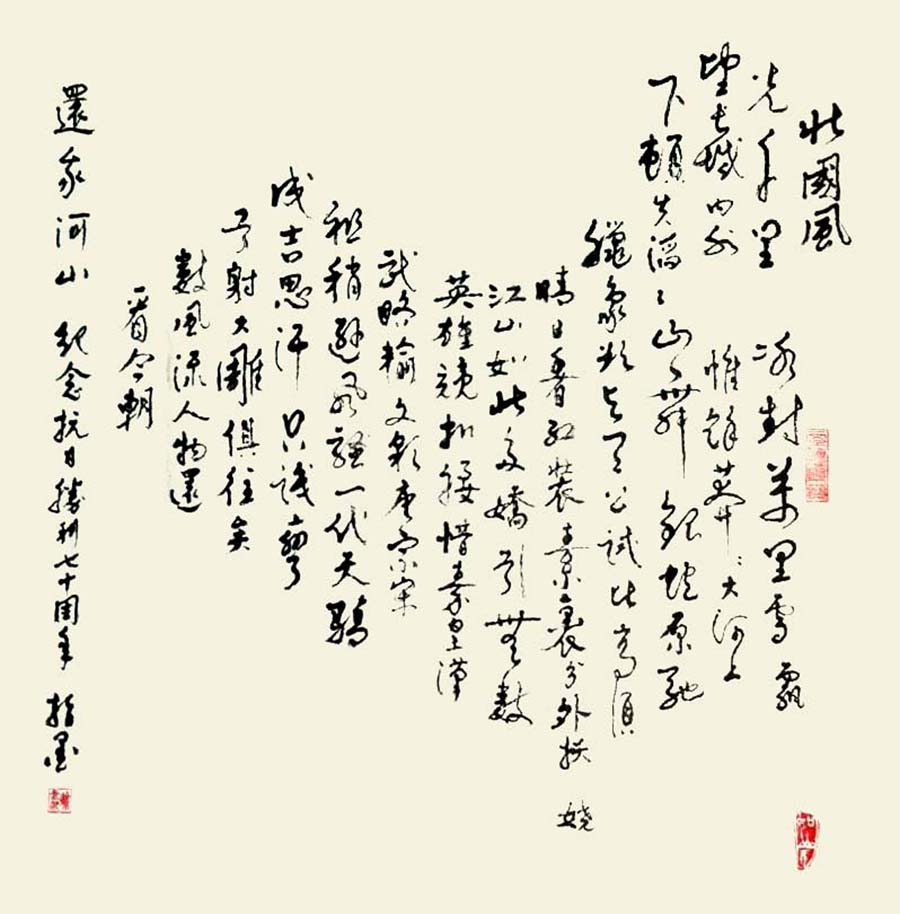 北國風
光千里 冰封萬里雪飄
望長城內外 惟餘莽々大河上
下頓失滔々 山舞銀蛇原馳
蠟象欲與天公試比高須
晴日看紅裝素裹分外妖嬈
江山如此多嬌引無數
英雄競折腰惜秦皇漢
武略輸文彩唐宗宋
祖稍遜風騷一代天驕
成吉思汗只識彎
弓射大雕俱往矣
數風流人物還
看今朝
還我河山 紀念抗日勝利七十周年 指墨